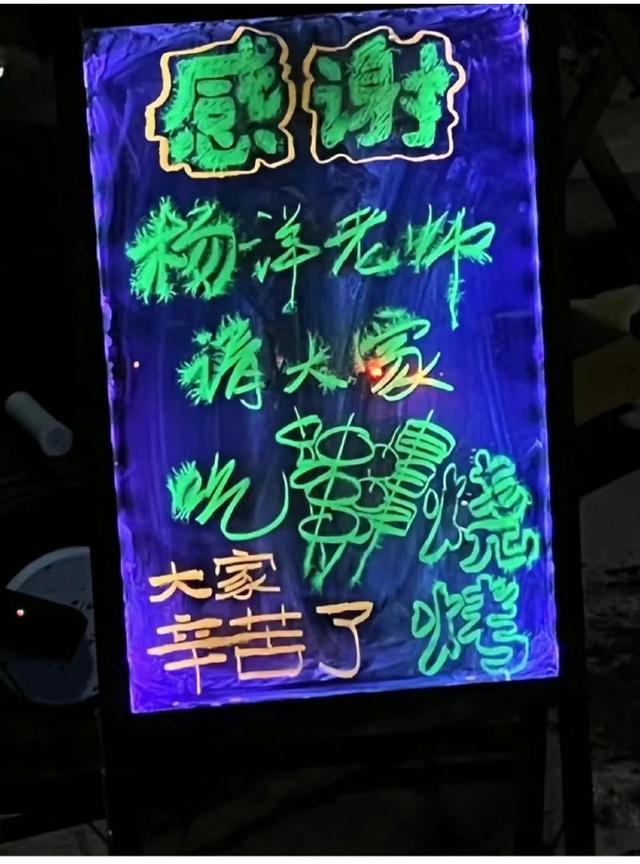 感谢
杨洋老师
请大家
吃烧烤
大家
辛苦了